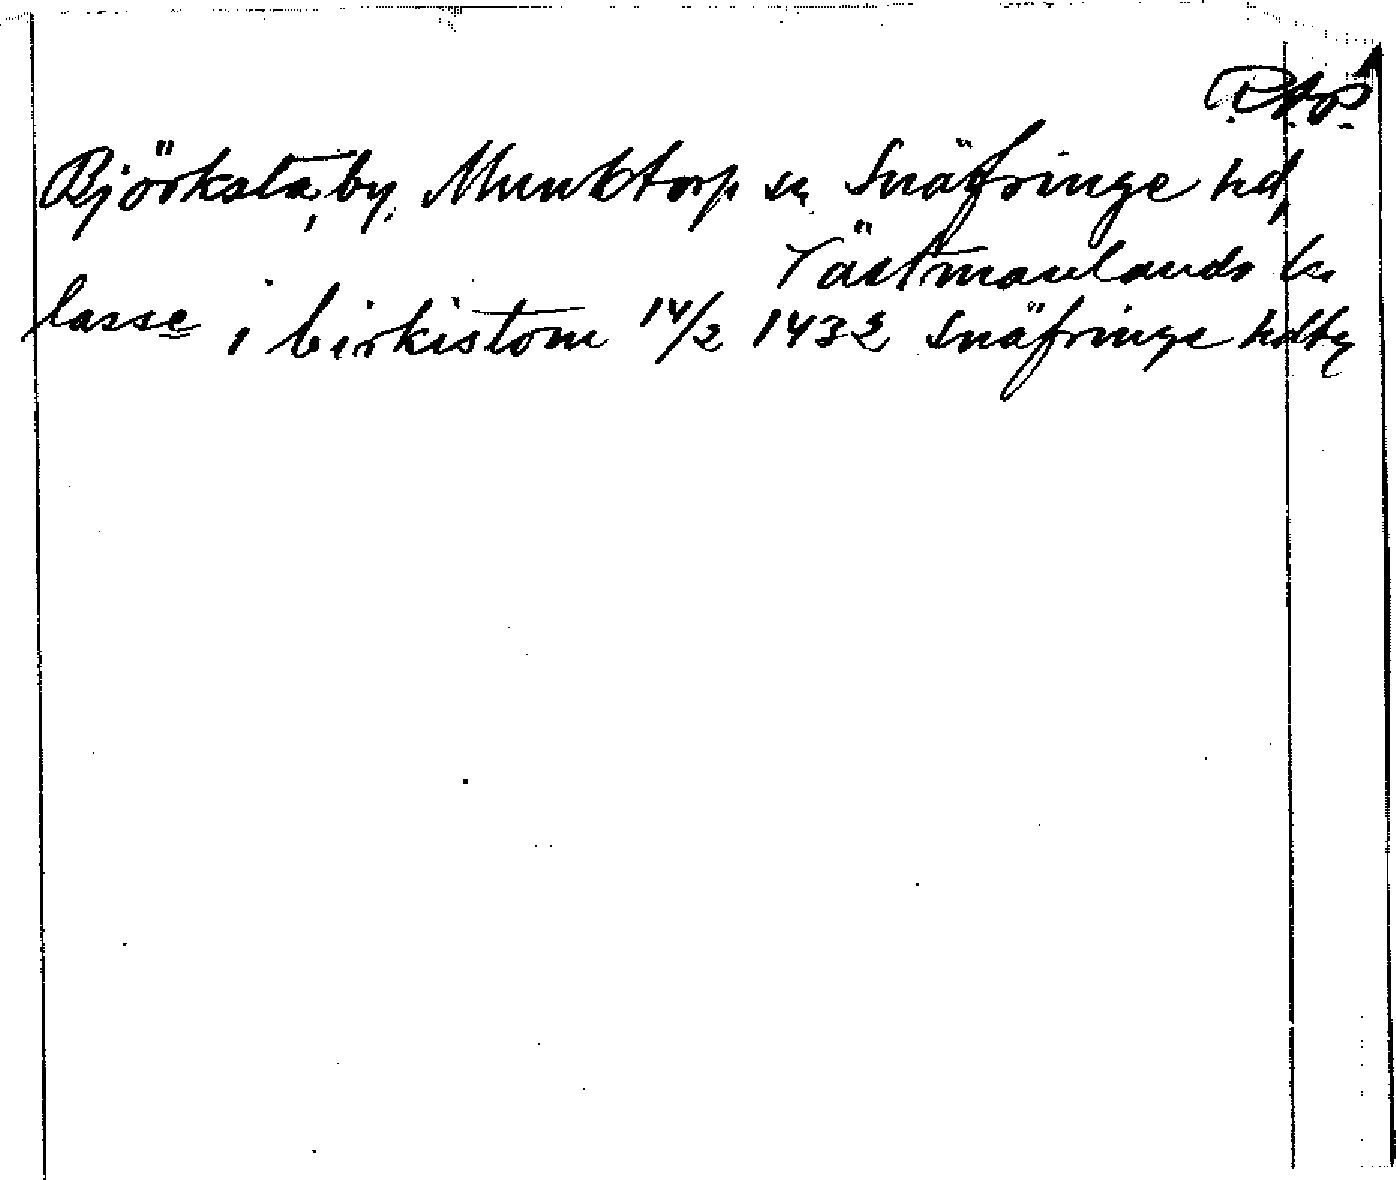 Björksta, by, Munktorp sn Snäfringe hd,
Västmanlands ln
lasse i birkistom 14/2 1432 Snäfringe hdbg